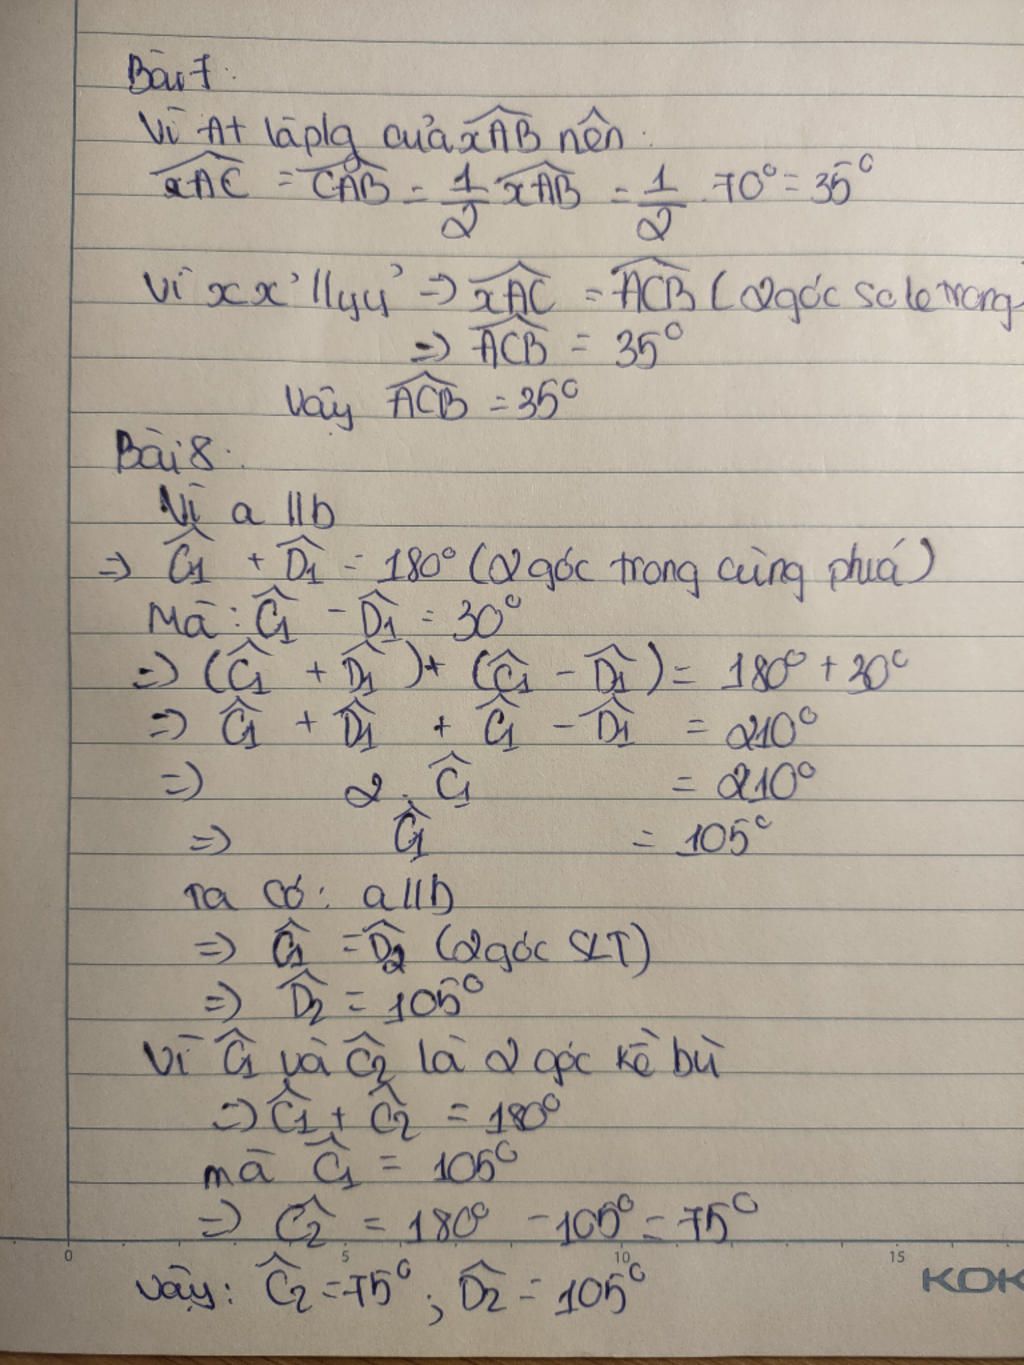 Bài 7:
Vì At là p/g của xAB nên:
xAC = CAB = 1/2 xAB = 1/2 . 70° = 35°
Vì xx' // yy' => xAC = ACB (2 góc so le trong
=> ACB = 35°
Vậy ACB = 35°
Bài 8:
Vì a // b
=> Ĉ1 + D̂1 = 180° (2 góc trong cùng phía)
Mà: Ĉ1 - D̂1 = 30°
=> (Ĉ1 + D̂1) + (Ĉ1 - D̂1) = 180° + 30°
=> Ĉ1 + D̂1 + Ĉ1 - D̂1 = 210°
=> 2 . Ĉ1 = 210°
=> Ĉ1 = 105°
Ta có: a // b
=> Ĉ1 = D̂2 (2 góc SLT)
=> D̂2 = 105°
Vì Ĉ1 và Ĉ2 là 2 góc kề bù
=> Ĉ1 + Ĉ2 = 180°
mà Ĉ1 = 105°
=> Ĉ2 = 180° - 105° = 75°
0 5 10 15
Vậy: Ĉ2 = 75° ; D̂2 = 105°
KOK